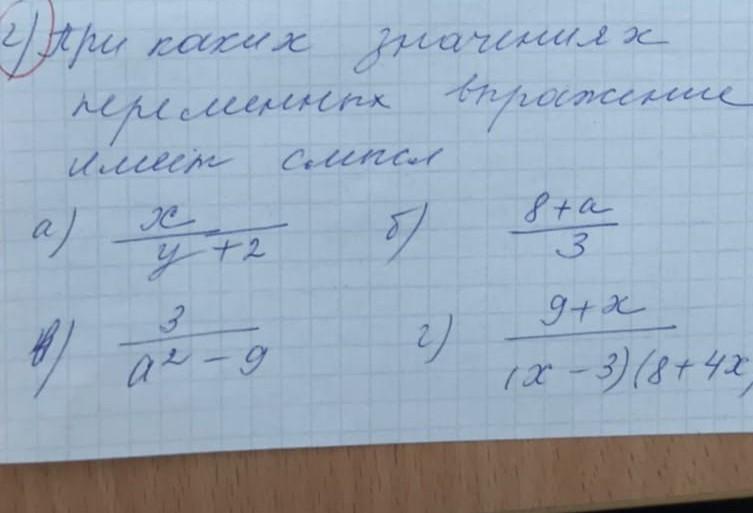 2) При каких значениях
переменных выражение
имеет смысл
а) x / y + 2 б) 8 + a / 3
в) 3 / a² - 9 г) 9 + x / (x - 3)(8 + 4x)